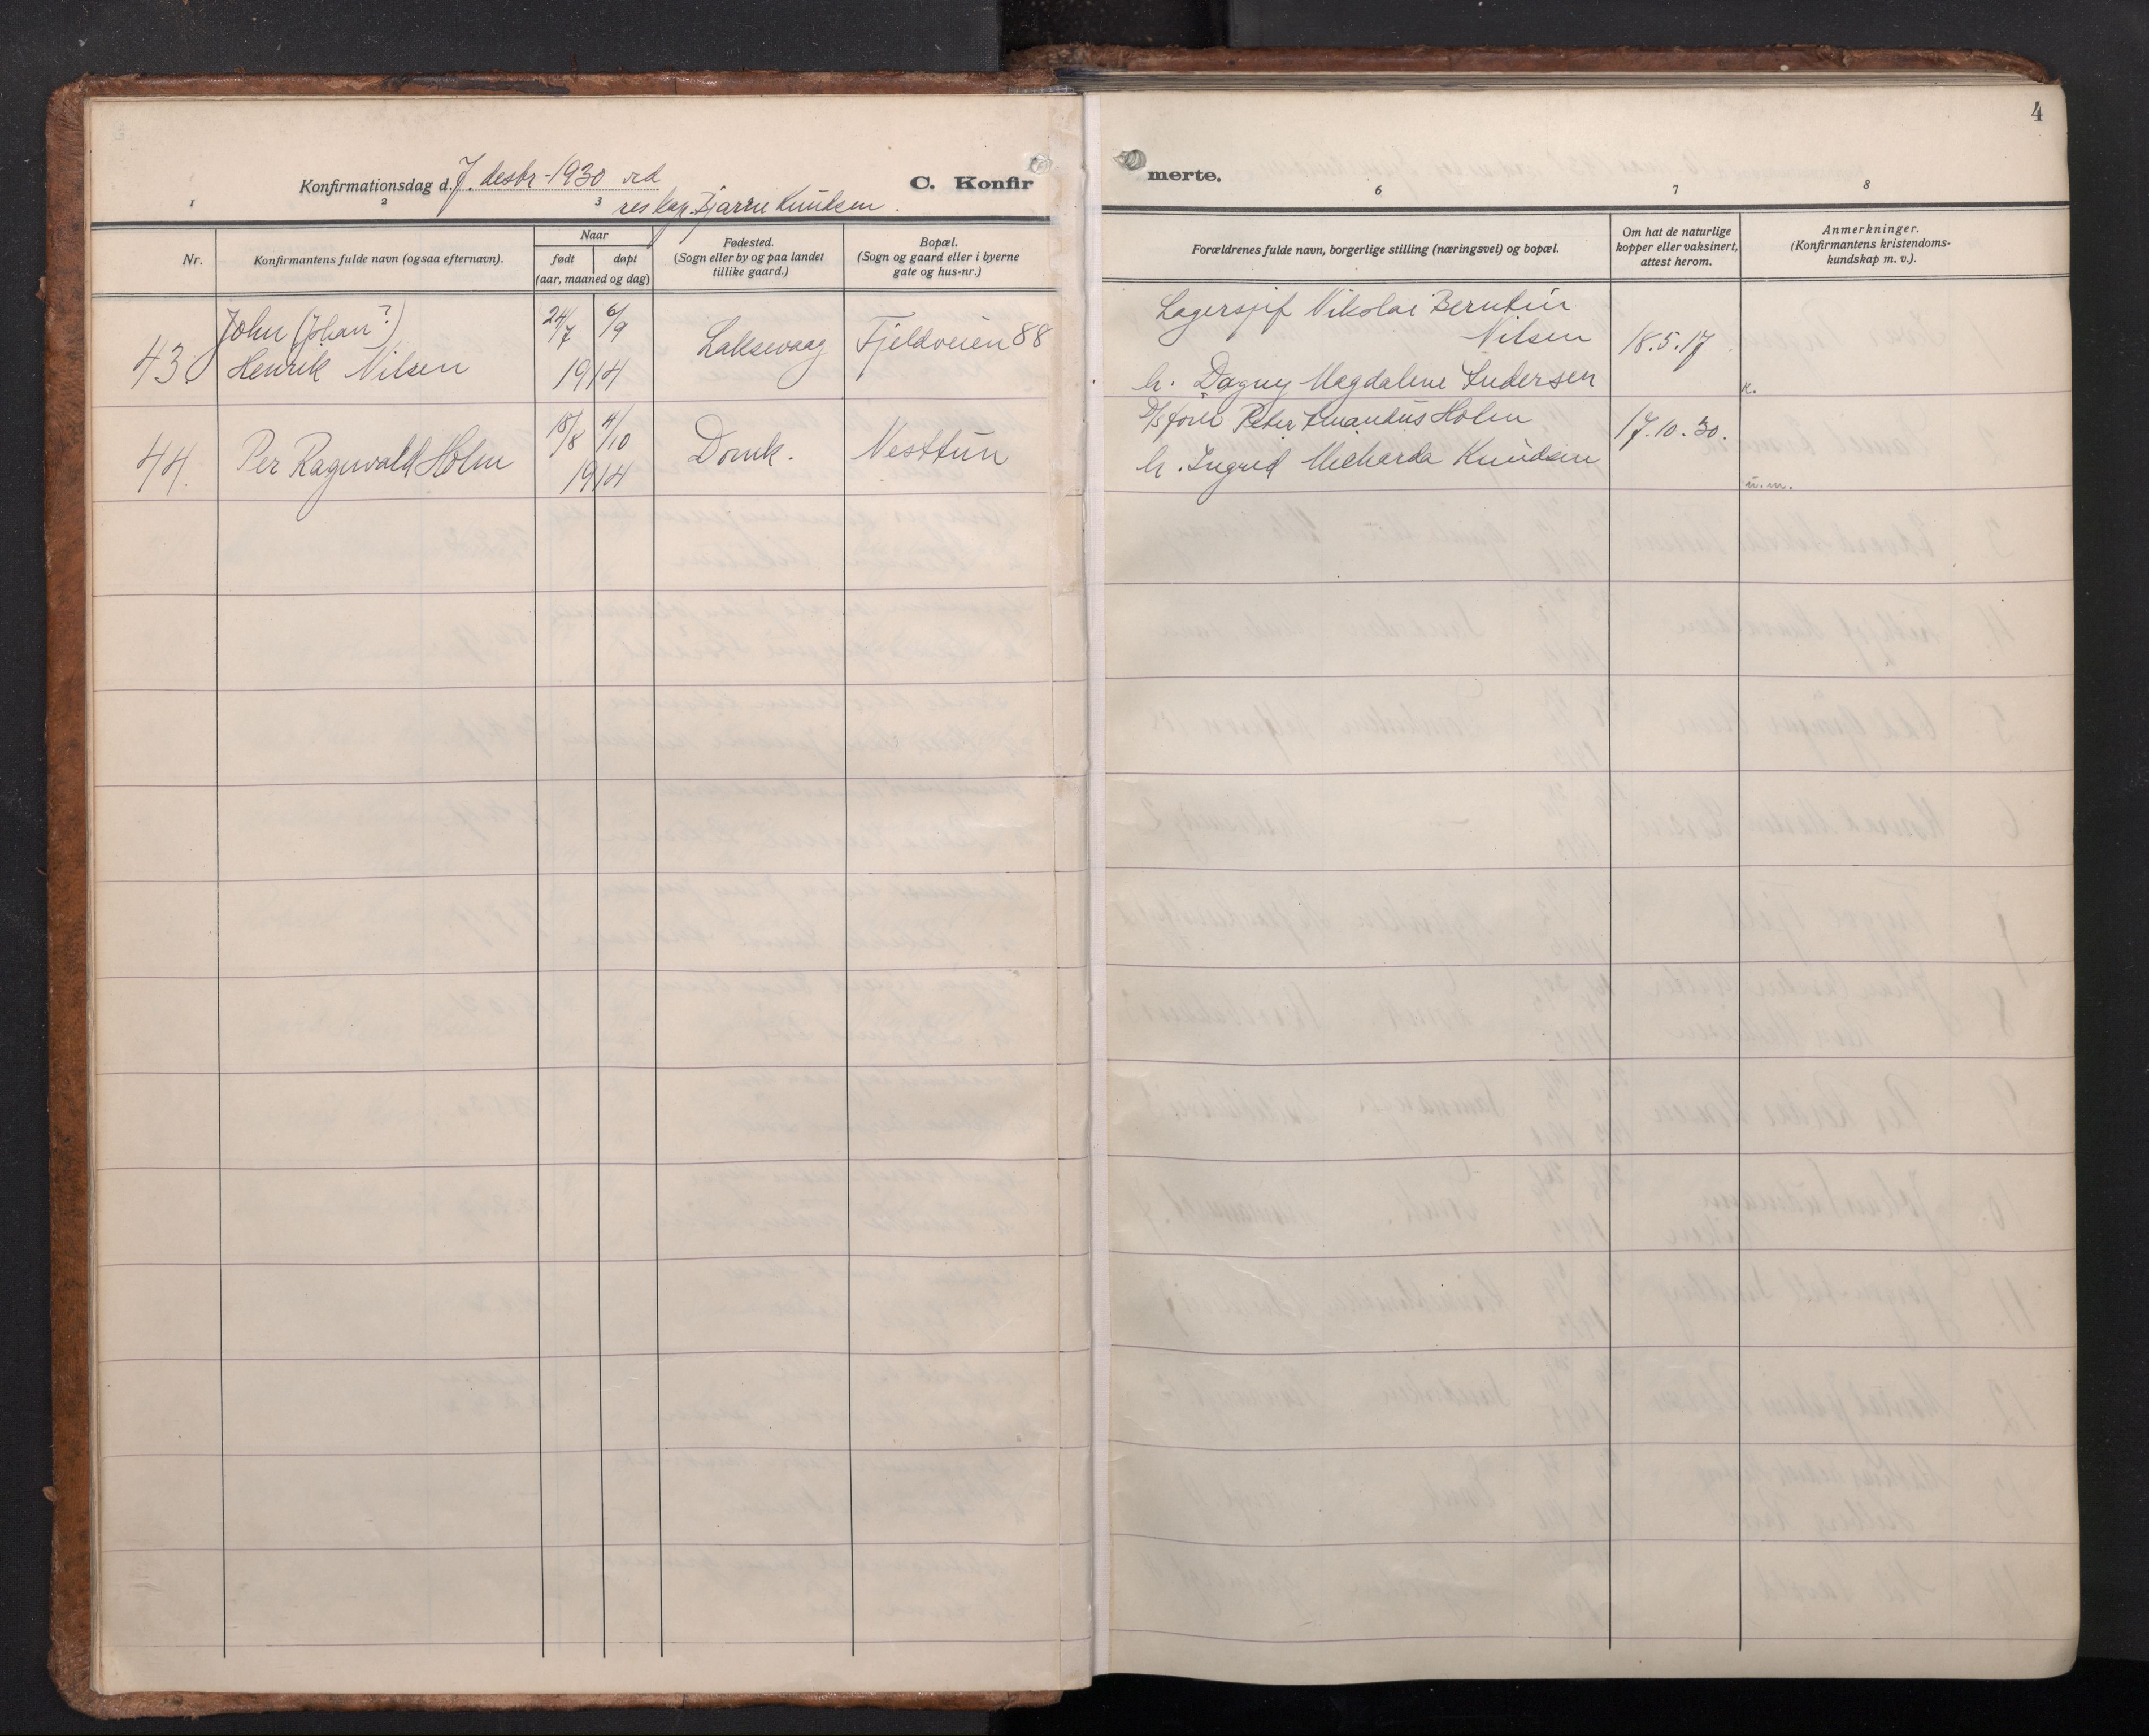 4
Konfirmationsdag d. 7. desbr. 1930 ved
res. kap. Bjarne Knudsen.
C. Konfirmerte.
1 2 3 6 7 8
Nr.
Konfirmantens fulde navn (ogsaa efternavn).
Naar
født døpt
(aar, maaned og dag)
Fødested.
(Sogn eller by og paa landet
tillike gaard.)
Bopæl.
(Sogn og gaard eller i byerne
gate og hus-nr.)
Forældrenes fulde navn, borgerlige stilling (næringsvei) og bopæl.
Om hat de naturlige
kopper eller vaksinert,
attest herom.
Anmerkninger.
(Konfirmantens kristendoms-
kundskap m. v.).
43. John (Johan?)
Henrik Nilsen
24/7 6/9
1914
Laksevaag
Fjeldveien 88
Lagersjef Nikolai Berntin
Nilsen
h. Dagny Magdalene Andersen
18.5.17
K.
44. Per Ragnvald Holm
18/8 4/10
1914
Domk.
Nesttun
D/s fører Peter Amandus Holm
h. Ingrid Micharda Knudsen
17.10.30.
u.m.